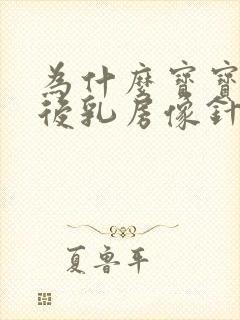 為什麼寶寶
後乳房像針
夏魯平